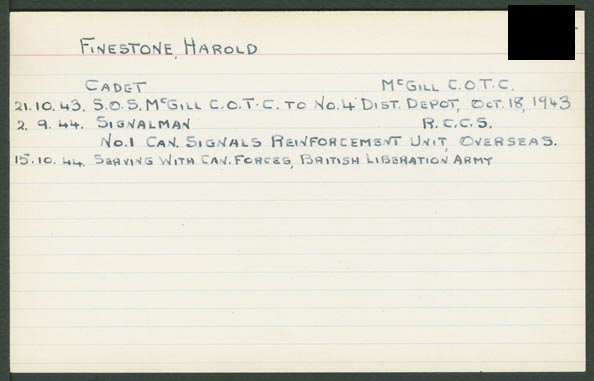 FINESTONE, HAROLD
CADET McGILL C.O.T.C.
21.10.43. S.O.S. McGILL C.O.T.C. TO NO.4 DIST. DEPOT, OCT.18, 1943
2. 9. 44. SIGNALMAN R.C.C.S.
NO.1 CAN. SIGNALS REINFORCEMENT UNIT, OVERSEAS.
15.10.44. SERVING WITH CAN. FORCES, BRITISH LIBERATION ARMY